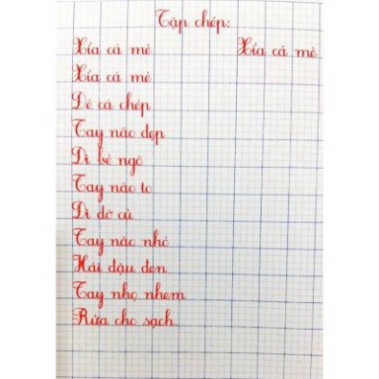 Tập chép:
Xỉa cá mè Xỉa cá mè
Xỉa cá mè
Dè cá chép
Tay nào đẹp
Đi bẻ ngô
Tay nào to
Đi dỡ củ
Tay nào nhỏ
Hái đậu đen
Tay nhọ nhem
Rửa cho sạch